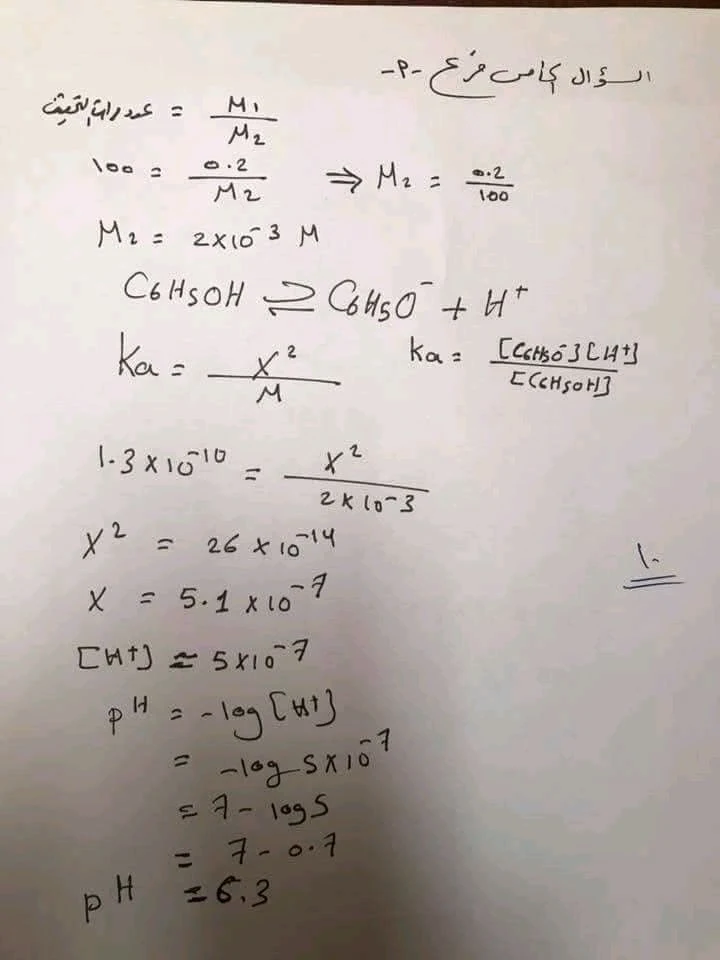 السؤال الخامس فرع -P-
عدد مرات التخفيف = M1/M2
100 = 0.2/M2 ⇒ M2 = 0.2/100
M2 = 2×10⁻³ M
C6H5OH ⇌ C6H5O⁻ + H⁺
Ka = X²/M Ka = [C6H5O⁻][H⁺]/[C6H5OH]
1.3 × 10⁻¹⁰ = X²/2×10⁻³
X² = 26 × 10⁻¹⁴
١٠
X = 5.1 × 10⁻⁷
[H⁺] ≈ 5×10⁻⁷
pH = -log [H⁺]
= -log 5×10⁻⁷
= 7 - log5
= 7 - 0.7
pH = 6.3